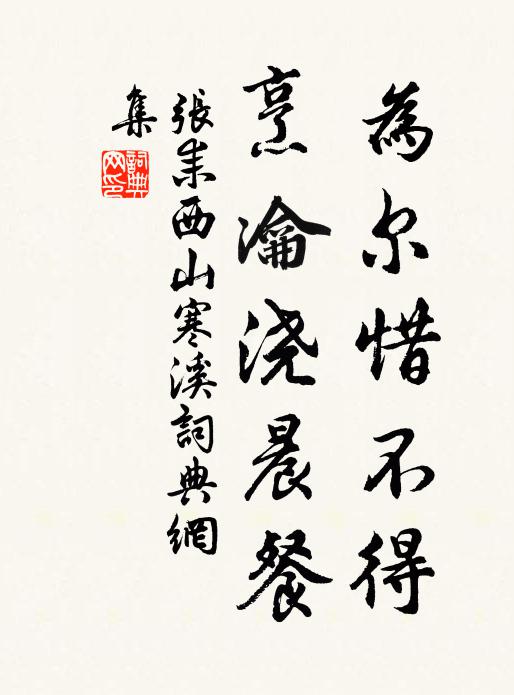 為尔惜不得
烹瀹浇晨餐
張耒西山寒溪詞典網
集
詞典
网印